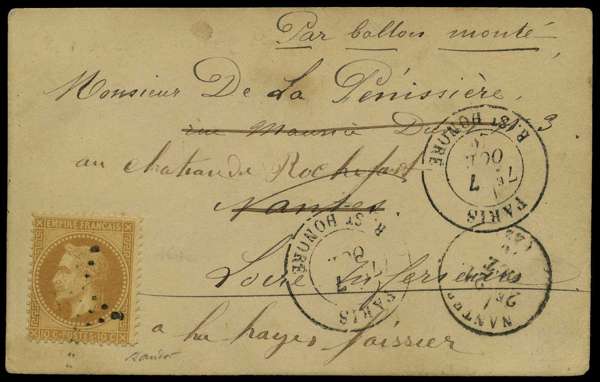 Par ballon monté
Monsieur De La Pénissière,
rue Maurice Du 3
au chateau de Rochefort
Nantes
Loire Inférieure
à la haye foissier
EMPIRE FRANÇAIS
10 C POSTES 10 C
PARIS
R. ST HONORÉ
7E
7
OCT.
PARIS
R. ST HONORÉ
7
OCT.
NANTES
2E